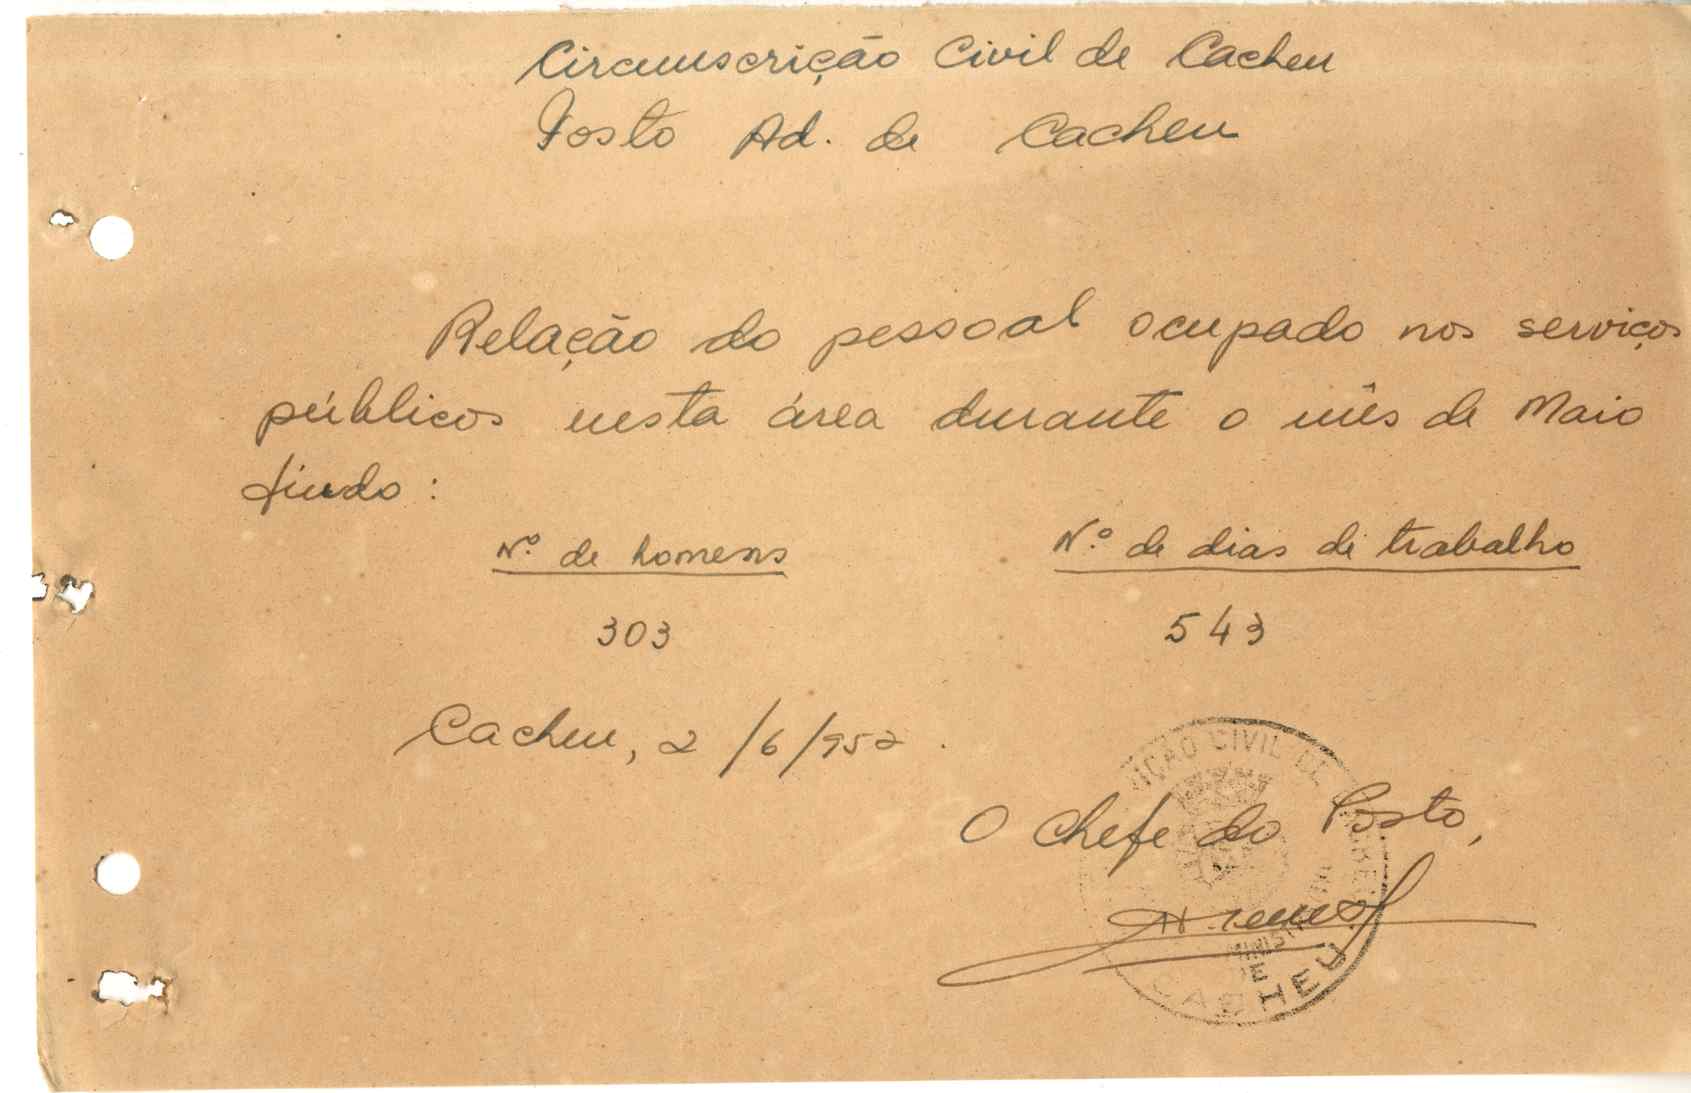 Circunscrição Civil de Cacheu
Posto Ad. de Cacheu
Relação do pessoal ocupado nos serviços
públicos nesta área durante o mês de Maio
findo:
Nº de homens Nº de dias de trabalho
303 543
Cacheu, 2/6/952.
O Chefe do Posto,
IÇÃO CIVIL DE
CACHEU